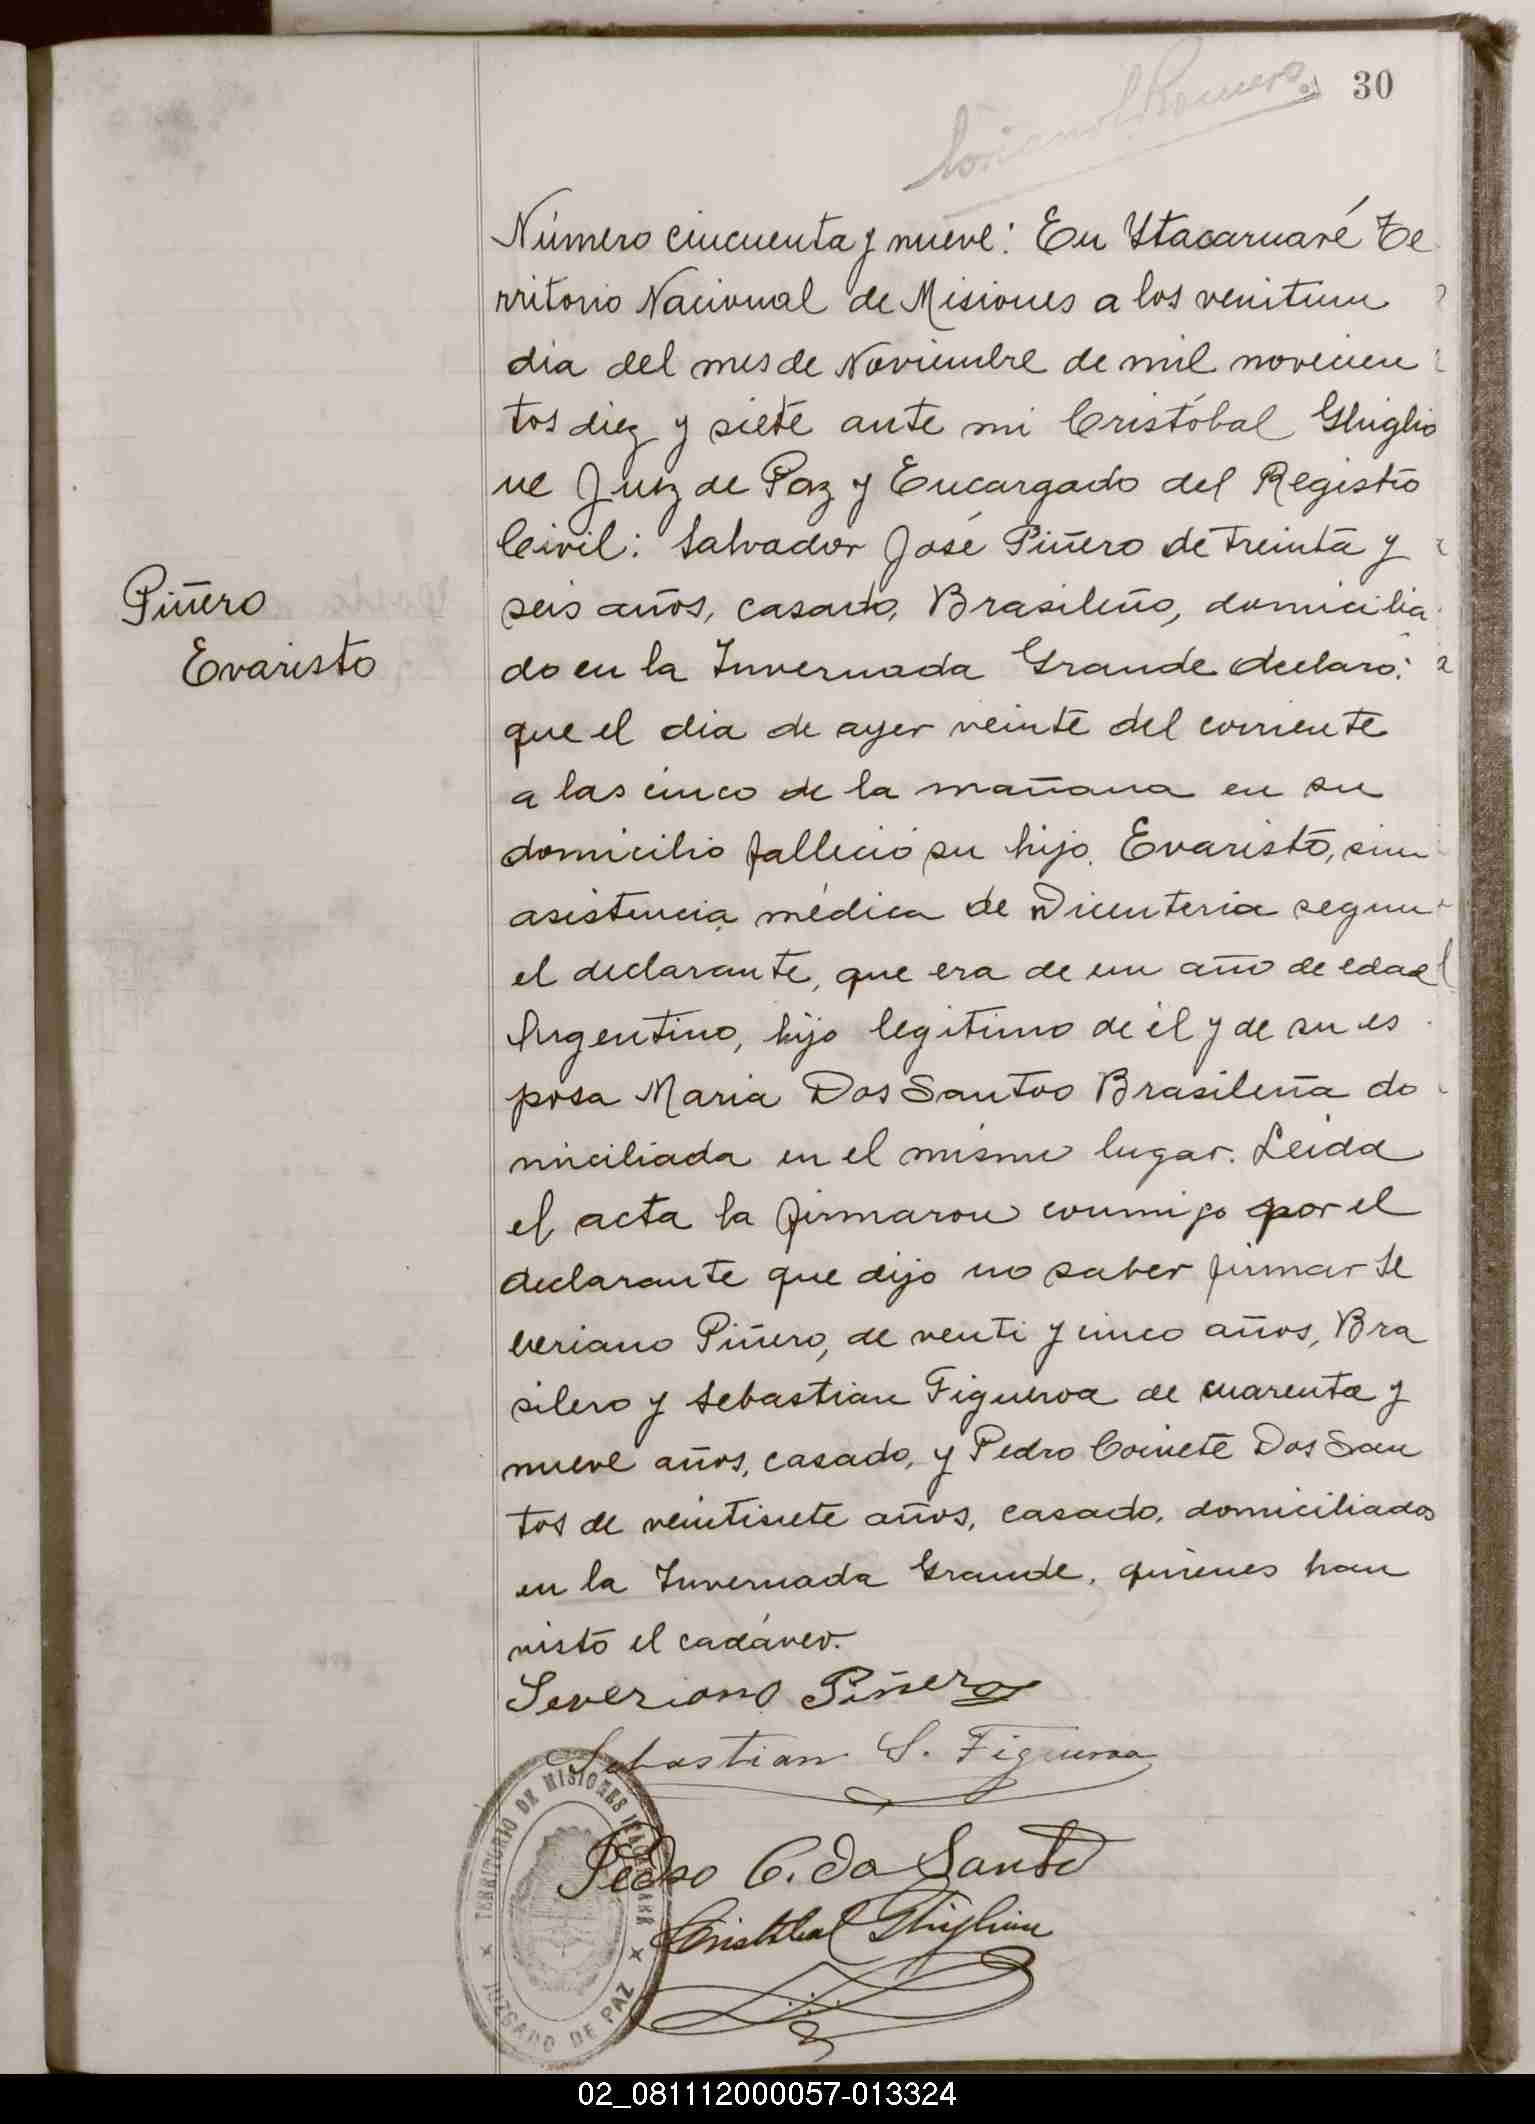 30
Romero
Número cincuenta y nueve: En Ytacaruaré Te
rritorio Nacional de Misiones a los venitiun
dia del mes de Noviembre de mil novecien
tos diez y siete ante mi Cristóbal Ghiglio
ne Juez de Paz y Encargado del Registro
Civil: Salvador José Piñero de treinta y
seis años, casado, Brasileño, domicilia
do en la Invernada Grande declaró:
que el dia de ayer veinte del corriente
a las cinco de la mañana en su
domicilio falleció su hijo Evaristo, sin
asistencia médica de Dicenteria segun
el declarante, que era de un año de edad
Argentino, hijo legitimo de él y de su es
posa Maria Dos Santos Brasileña do
miciliada en el mismo lugar. Leida
el acta la firmaron conmigo por el
declarante que dijo no saber firmar Se
veriano Piñero, de venti y cinco años, Bra
silero y Sebastian Figueroa de cuarenta y
nueve años, casado, y Pedro Coinete Dos San
tos de veintisiete años, casado, domiciliados
en la Invernada Grande, quienes han
visto el cadáver.
Piñero
Evaristo
Severiano Piñero
Sebastian S. Figueroa
Pedro C. do Santo
Cristobal Ghiglione
TERRITORIO DE MISIONES
JUZGADO DE PAZ
02_081112000057-013324